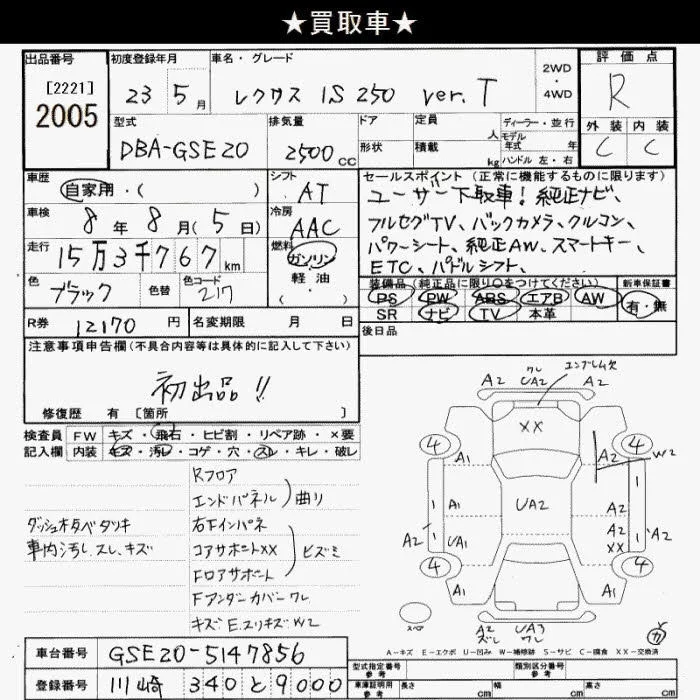 ★買取車★
出品番号 初度登録年月 車名・グレード 評価点
[2221] 2005 23 5月 レクサス IS250 ver.T 2WD・4WD R
型式 排気量 ドア 定員 人 ディーラー・並行 外装 内装
DBA-GSE20 2500cc 形状 積載 kg モデル年式 年 ハンドル 左・右 C C
車歴 シフト セールスポイント(正常に機能するものに限ります)
自家用・( ) AT ユーザー下取車!純正ナビ、
車検 8年8月(5日) 冷房 AAC フルセグTV、バックカメラ、クルコン、
走行 15万3千767km 燃料 ガソリン 軽油・( ) パワーシート、純正AW、スマートキー、
ETC、パドルシフト、
色 ブラック 色替 色コード 217 装備品(純正品に限り○をつけてください) 新車保証書
PS PW ABS エアB AW 有・無
R券 12170円 名変期限 月 日 SR ナビ TV 本革
後日品
注意事項申告欄(不具合内容等は具体的に記入して下さい)
初出品!!
修復歴 有 [箇所 ]
検査員 FW キズ・飛石・ヒビ割・リペア跡・×要
記入欄 内装 キズ・汚レ・コゲ・穴・スレ・キレ・破レ
Rフロア
エンドパネル 曲り
ダッシュボタベタツキ 右下インパネ
車内汚し、スレ、キズ コアサポートXX ヒズミ
Fロアサポート
Fアンダーカバーワレ
キズE.スリキズW2
A2 ワレ UA2 エンブレム欠 A2
XX
4 4
A1 A2 W2
A1 UA2 A2
A2 UA1 A2 XX A2
4 4
A1 A1
スペア A2 ズレ UA3 ワレ A2 ガ
A-キズ E-エクボ U-凹み W-補修跡 S-サビ C-腐食 XX-交換済
車台番号 GSE20-5147856
登録番号 川崎 340 と 9000
型式指定番号 参考 類別区分番号 参考
車庫証明用 参考 長さ cm 幅 cm 高さ cm